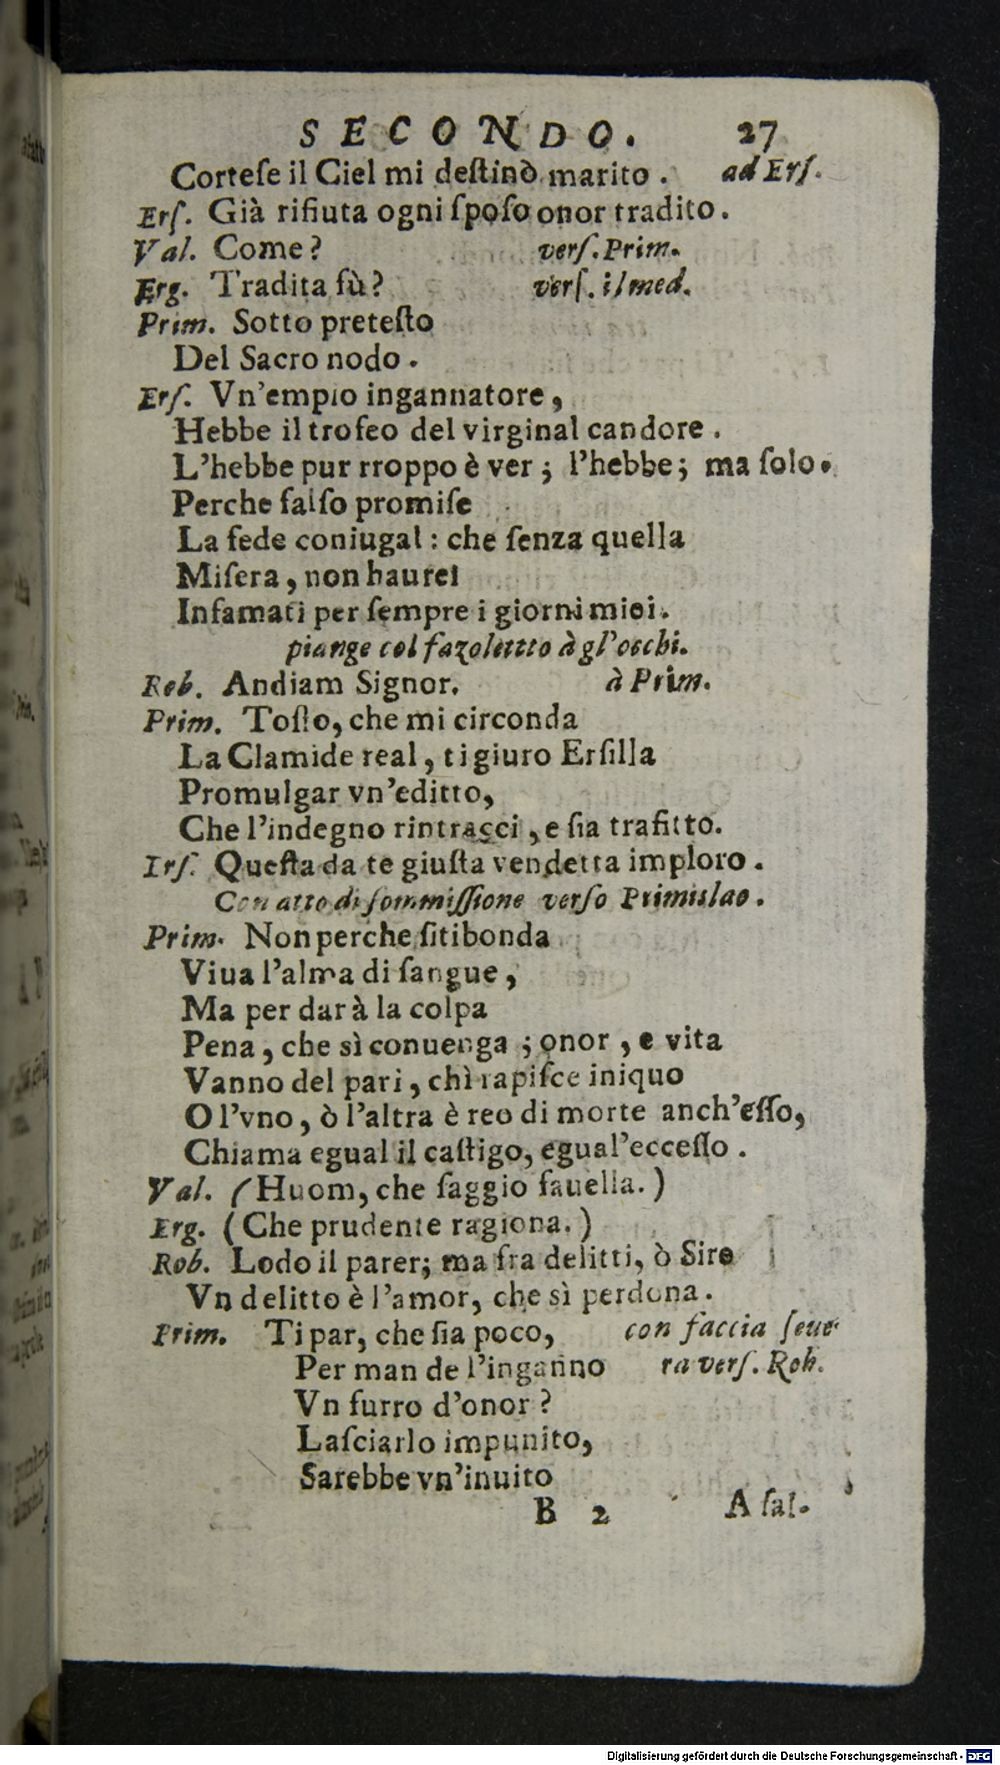 SECONDO. 27
Corteſe il Ciel mi deſtinò marito. ad Erſ.
Erſ. Già rifiuta ogni ſpoſo onor tradito.
Val. Come? verſ. Prim.
Erg. Tradita fù? verſ. il med.
Prim. Sotto preteſto
Del Sacro nodo.
Erſ. Vn'empio ingannatore,
Hebbe il trofeo del virginal candore.
L'hebbe pur rroppo è ver; l'hebbe; ma ſolo.
Perche falſo promiſe
La fede coniugal: che ſenza quella
Miſera, non haurei
Infamati per ſempre i giorni miei.
piange col fazolettto à gl'occhi.
Rob. Andiam Signor. à Prim.
Prim. Toſto, che mi circonda
La Clamide real, ti giuro Erſilla
Promulgar vn'editto,
Che l'indegno rintracci, e ſia trafitto.
Irſ. Queſta da te giuſta vendetta imploro.
Con atto di ſommiſſione verſo Primislao.
Prim. Non perche ſitibonda
Viua l'alma di ſangue,
Ma per dar à la colpa
Pena, che sì conuenga; onor, e vita
Vanno del pari, chì rapiſce iniquo
O l'vno, ò l'altra è reo di morte anch'eſſo,
Chiama egual il caſtigo, egual'ecceſſo.
Val. (Huom, che ſaggio fauella.)
Erg. (Che prudente ragiona.)
Rob. Lodo il parer; ma fra delitti, ò Sire
Vn delitto è l'amor, che sì perdona.
Prim. Ti par, che ſia poco, con faccia ſeue-
Per man de l'inganno ra verſ. Rob.
Vn furro d'onor?
Laſciarlo impunito,
Sarebbe vn'inuito
B 2 A ſal-
Digitalisierung gefördert durch die Deutsche Forschungsgemeinschaft - DFG